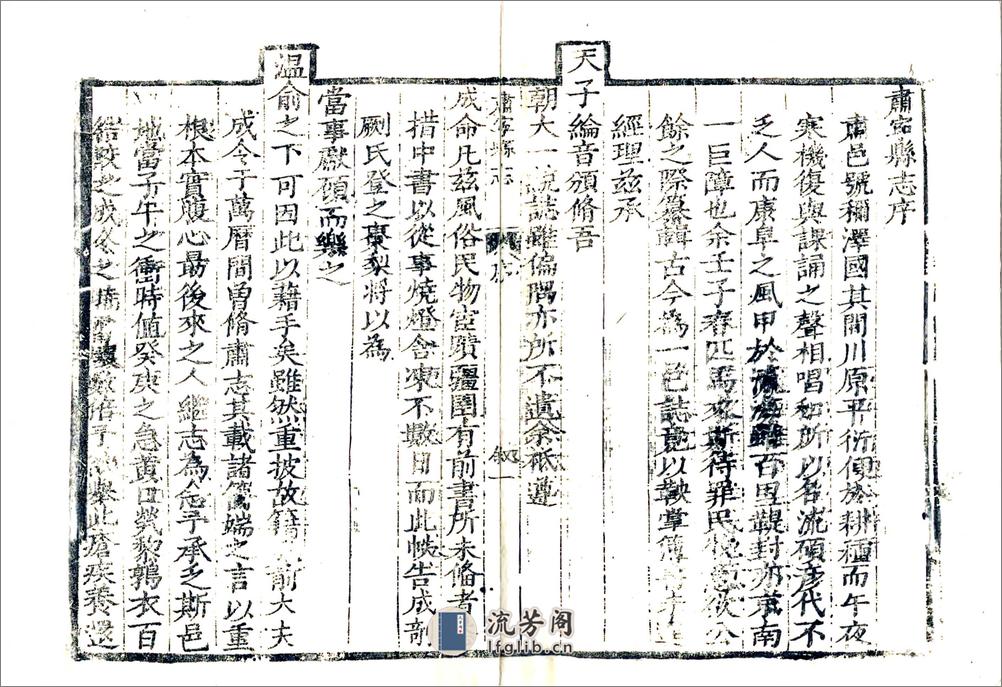 肅寧縣志序
肅邑號稱澤國其間川原平衍便於耕種而午夜
寒機復與課誦之聲相唱和所以名流碩彥代不
乏人而康阜之風甲於百里鞮封亦燕南
一巨障也余壬子春匹馬來斯待罪民
餘之際纂輯古今為一邑誌竟以鞅掌
經理茲承
天子綸音頒脩吾
朝大一統誌雖偏隅亦所不遺余祇遵
肅寧縣志
序
叙一
成命凡茲風俗民物宦蹟疆圉有前書所未備者
措中書以從事燒燈含凍不數日而此帙告成剞
劂氏登之棗梨將以為
當事獻頌而樂之
溫俞之下可因此以藉手矣雖然重披故籍前大夫
成令于萬曆間曾脩肅志其載諸篇端之言以重
根本實腹心最後來之人繼志為念予承乏斯邑
地當子午之衝時值癸庚之急黃口煢黎鶉衣百
結較之成令之此瘡痍養還
流芳阁
lfglib.cn